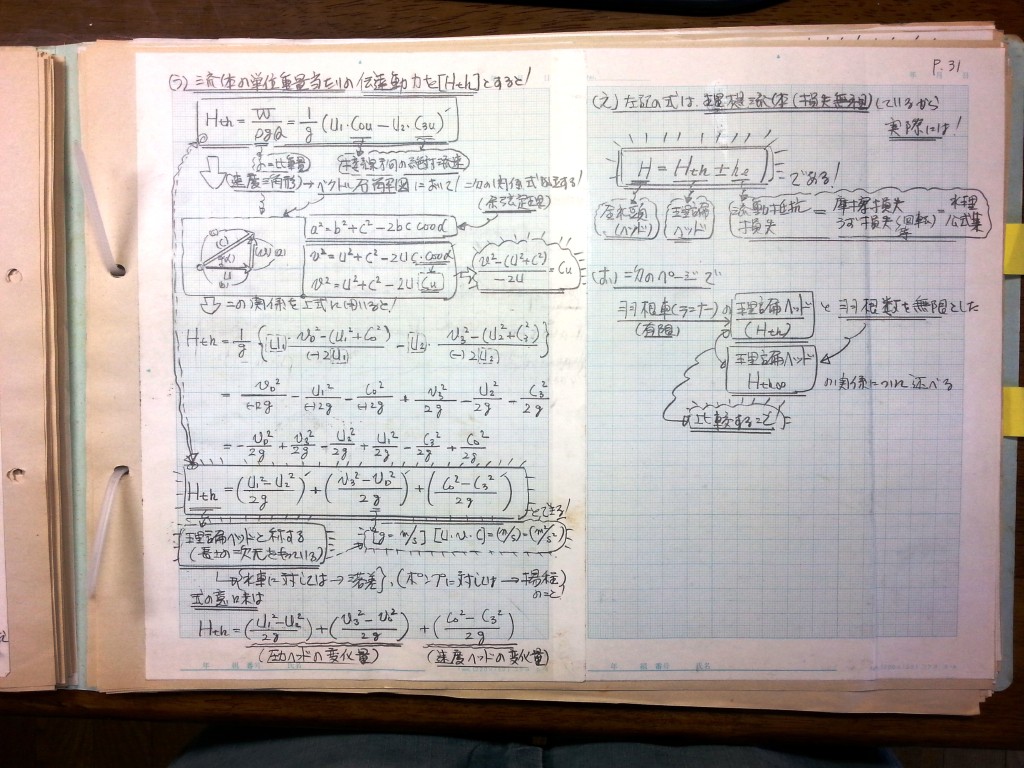 P.31
(う) 流体の単位重量当たりの伝達動力を[Hth]とすると!
Hth = W/ρgQ = 1/g (U₁・C₀u − U₂・C₃u)
(速度三角形)→ベクトル
(余弦定理)
a² = b² + c² − 2bc cosα
v² = U² + C² − 2U C・cosα
v² = U² + C² − 2U Cu
v² − (U² + C²) / −2U = Cu
この関係を上式に用いると!
Hth = 1/g { U₁・v₀² − (U₁² + C₀²) / (−)2U₁ − U₂・v₃² − (U₂² + C₃²) / (−)2U₂ }
= v₀²/−2g − U₁²/−2g − C₀²/−2g + v₃²/2g − U₂²/2g − C₃²/2g
= −v₀²/2g + v₃²/2g − U₂²/2g + U₁²/2g − C₃²/2g + C₀²/2g
Hth = (U₁² − U₂² / 2g) + (v₃² − v₀² / 2g) + (C₀² − C₃² / 2g)
とできる!
理論ヘッドと称する
(長さの次元をもっている)
[U・v・C] = (m/s)
(水車に対しては→落差), (ポンプに対しては→揚程)
のこと!
式の意味は
Hth = (U₁² − U₂² / 2g) + (v₃² − v₀² / 2g) + (C₀² − C₃² / 2g)
(圧力ヘッドの変化量) (速度ヘッドの変化量)
(え) 左記の式は、理想流体(損失無視)しているから
実際には!
H = Hth ± he
である!
全水頭(ヘッド)
理論ヘッド
流動抵抗損失 = 摩擦損失 うず損失(回転)等 = 水理公式集
(お) 次のページで
羽根車(ランナー)の 理論ヘッド(Hth) と 羽根数を無限とした
(有限)
理論ヘッド Hth∞
の関係について述べる
比較すること